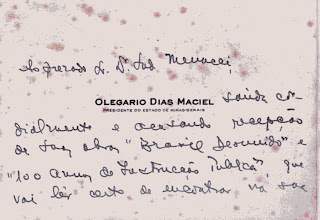 Ao prezado Sr. Dr. Sud Mennucci,
OLEGARIO DIAS MACIEL
PRESIDENTE DO ESTADO DE MINAS GERAIS
saúda cor-
dialmente e accusando recepção
de sua obra "Brasil Desunido" e
"100 annos de Instrucção Publica", que
vai ler certo de encontrar na sua